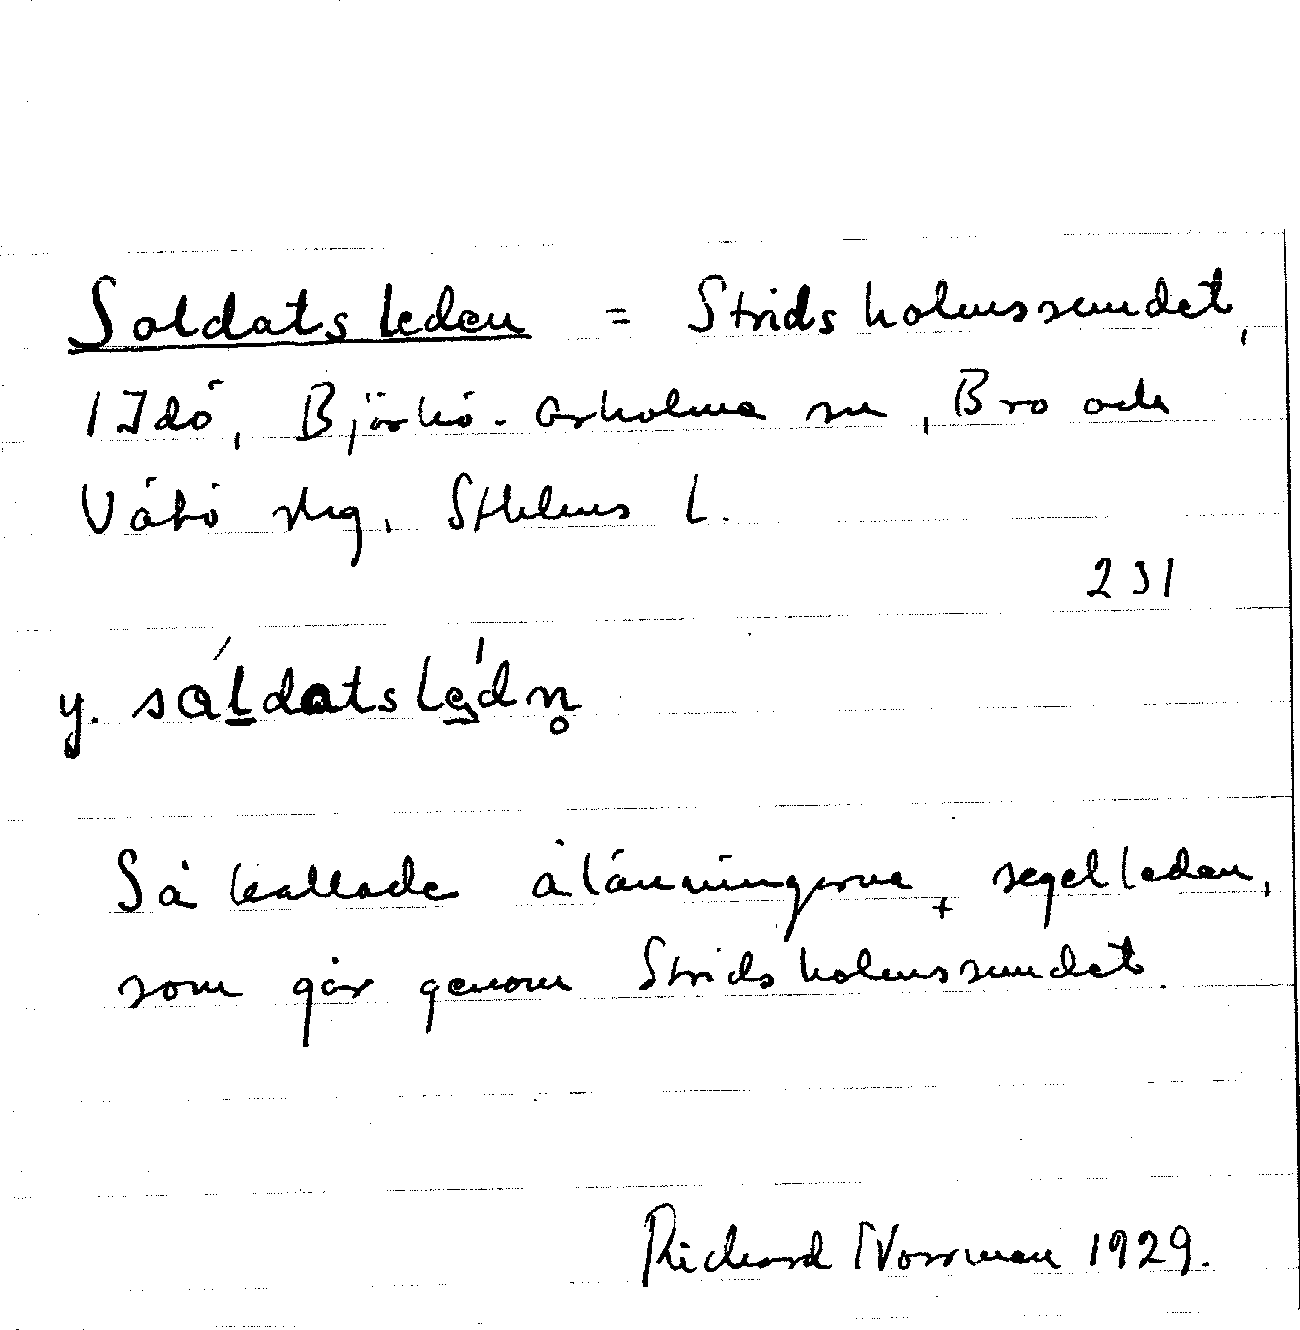 Soldatsleden = Stridsholmssundet,
1 Idö, Björkö-Arholma sn, Bro och
Vätö skg, Sthlms l.
231
y. sáldatsle̱'dn̥
Så kallade ålänningarna segelleden,
som går genom Stridsholmssundet.
Richard Norrman 1929.